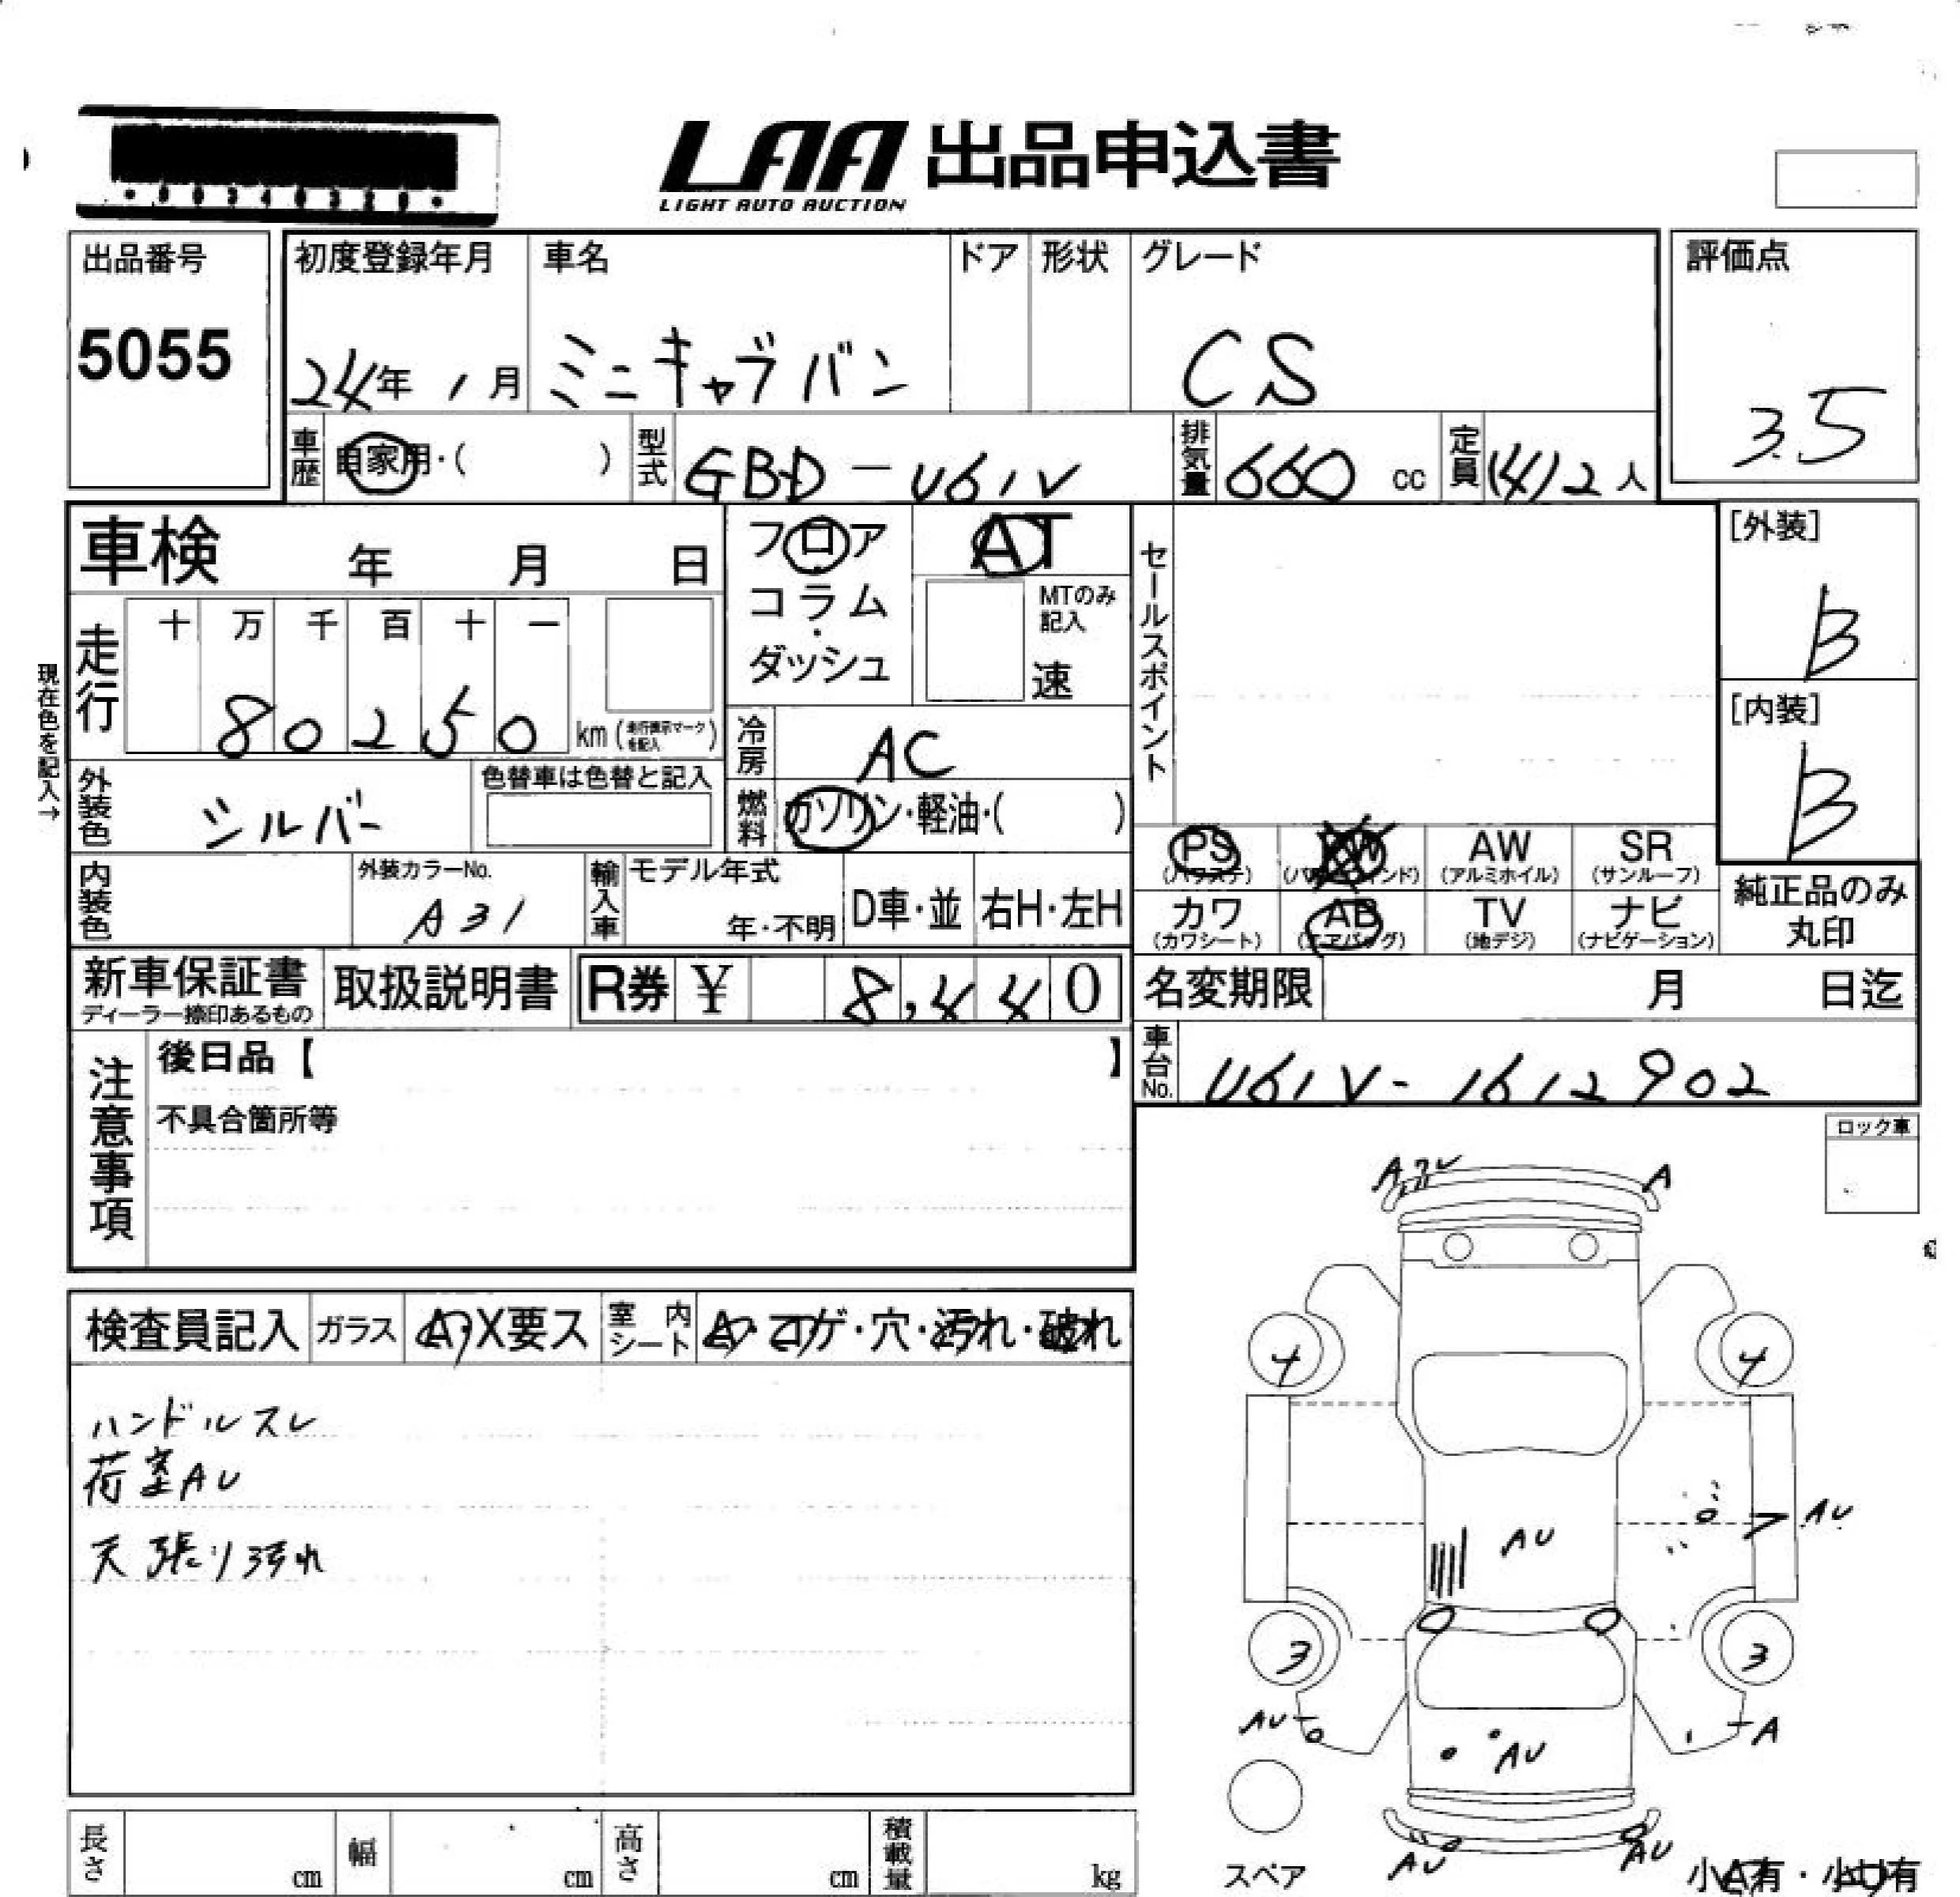 LAA 出品申込書
LIGHT AUTO AUCTION
出品番号
5055
初度登録年月
24年 1月
車名
ミニキャブバン
ドア
形状
グレード
CS
評価点
3.5
車歴
自家用・( )
型式
GBD-U61V
排気量
660 cc
定員
(4)2人
車検 年 月 日
走行
十 万 千 百 十 一
80250
km(走行表示マークを記入)
現在色を記入→
フロア
コラム
・
ダッシュ
AT
MTのみ
記入
速
セールスポイント
[外装]
B
[内装]
B
冷房
AC
外装色
シルバー
色替車は色替と記入
燃料
ガソリン・軽油・( )
内装色
外装カラーNo.
A31
輸入車
モデル年式
年・不明
D車・並
右H・左H
PS
(パワステ)
AW
(アルミホイル)
SR
(サンルーフ)
カワ
(カワシート)
AB
(エアバッグ)
TV
(地デジ)
ナビ
(ナビゲーション)
純正品のみ
丸印
新車保証書
ディーラー捺印あるもの
取扱説明書
R券 ¥ 8,440
名変期限 月 日迄
車台No.
U61V-1612902
注意事項
後日品【 】
不具合箇所等
ロック車
検査員記入
ガラス
A・X要ス
室内シート
A・コゲ・穴・汚れ・破れ
ハンドルスレ
荷室AU
天張り汚れ
A
4 4
AU
AU
3 3
AU
A
AU
AU
AU
スペア
小A有・小U有
長さ cm
幅 cm
高さ cm
積載量 kg